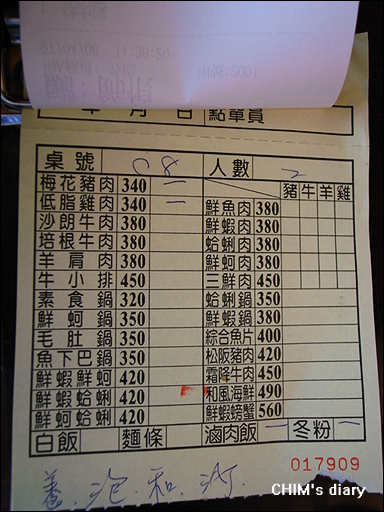 年 月 日 點單員
桌號 08 人數 2
梅花豬肉 340 一 豬 牛 羊 雞
低脂雞肉 340 一 鮮魚肉 380
沙朗牛肉 380 鮮蝦肉 380
培根牛肉 380 蛤蜊肉 380
羊肩肉 380 鮮蚵肉 380
牛小排 450 三鮮肉 450
素食鍋 320 蛤蜊鍋 350
鮮蚵鍋 350 鮮蝦鍋 380
毛肚鍋 350 綜合魚片 400
魚下巴鍋 350 松阪豬肉 420
鮮蝦鮮蚵 420 霜降牛肉 450
鮮蝦蛤蜊 420 和風海鮮 490
鮮蚵蛤蜊 420 鮮蝦螃蟹 560
白飯 麵條 滷肉飯 一 冬粉 一
017909
CHIM's diary